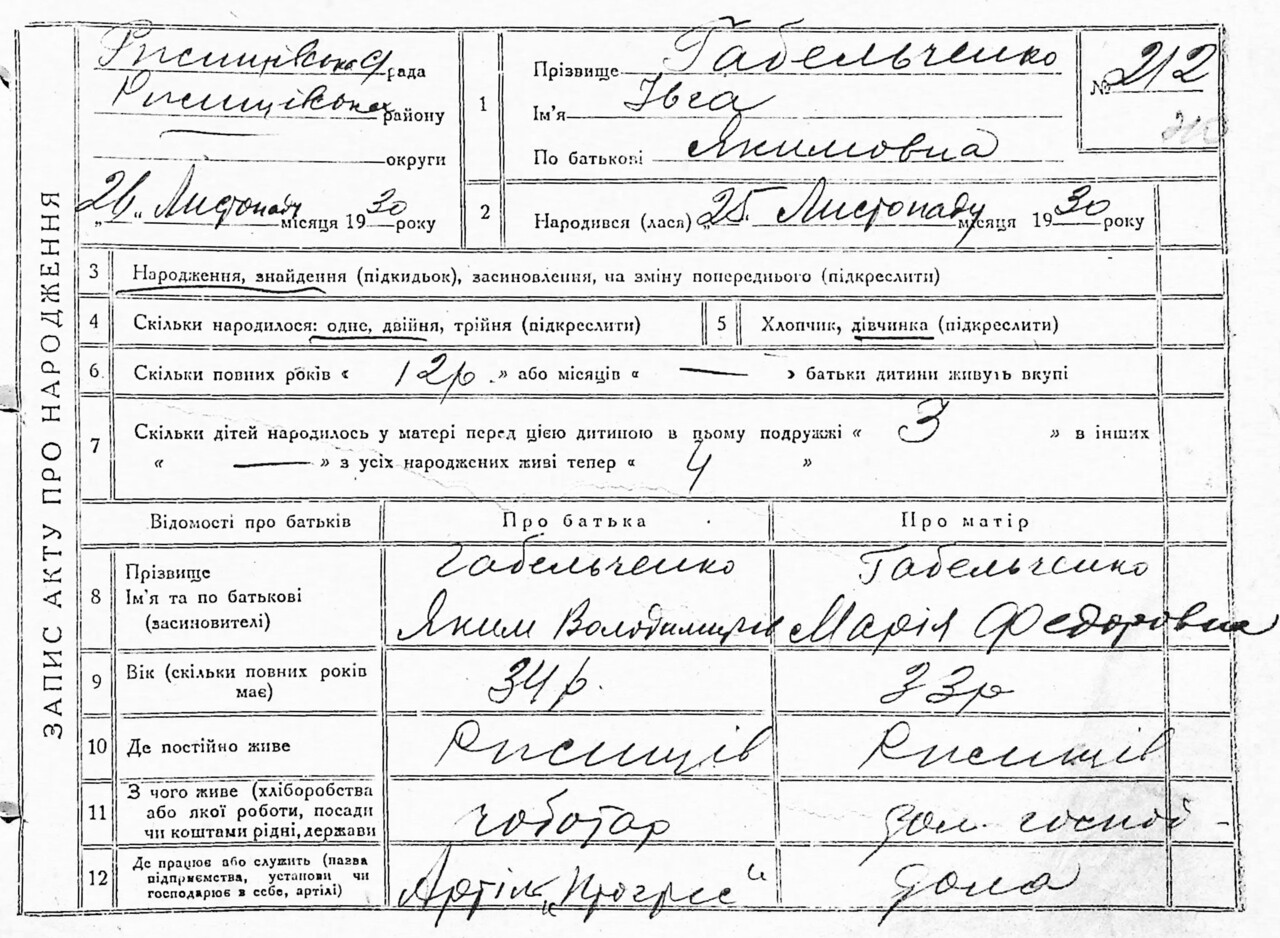 ЗАПИС АКТУ ПРО НАРОДЖЕННЯ
рада
району
округи
26 Листопаду місяця 1930 року
1
Прізвище Габельченко
Ім'я Івга
По батькові Якимовна
№ 212
2
Народився (лася) 25 Листопаду місяця 1930 року
3 Народження, знайдення (підкидьок), засиновлення, на зміну попереднього (підкреслити)
4 Скільки народилося: одне, двійня, трійня (підкреслити)
5 Хлопчик, дівчинка (підкреслити)
6 Скільки повних років « 12 р. » або місяців « — » батьки дитини живуть вкупі
7 Скільки дітей народилось у матері перед цією дитиною в цьому подружжі « 3 » в інших
« — » з усіх народжених живі тепер « 4 »
Відомості про батьків Про батька Про матір
8 Прізвище Габельченко Габельченко
Ім'я та по батькові Яким Володимирів Марія Федоровна
(засиновителі)
9 Вік (скільки повних років 34 р. 33 р
має)
10 Де постійно живе Ржищів Ржищів
11 З чого живе (хліборобства
або якої роботи, посади чоботар дом. господ-
чи коштами рідні, держави
12 Де працює або служить (назва
підприємства, установи чи Артіль „Прогрес" дома
господарює в себе, артілі)